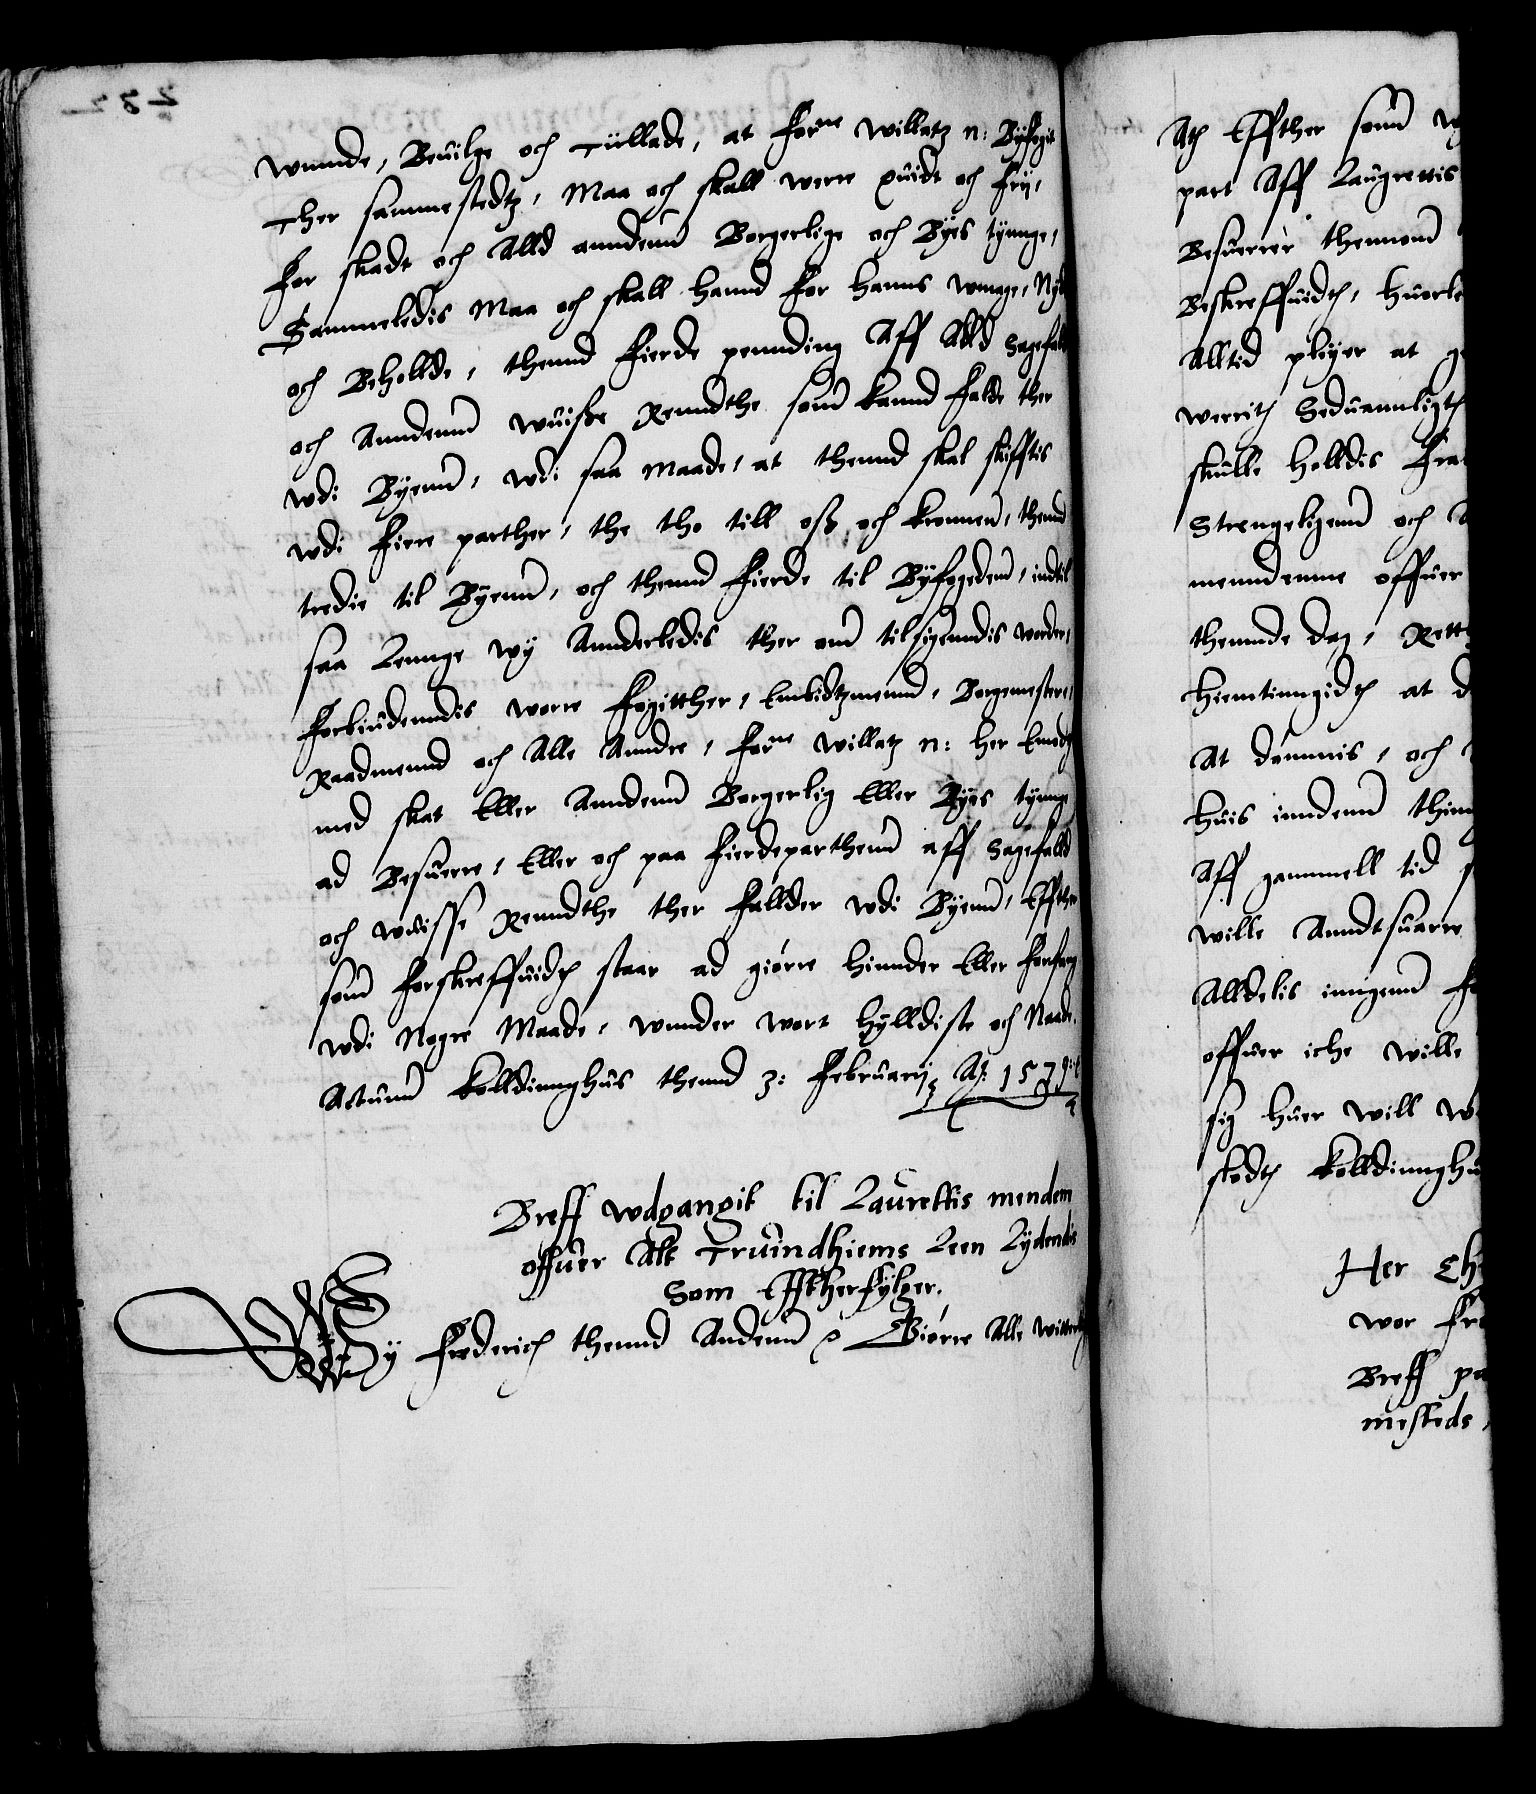 wunde, Beuilge och Tüllade, at Forne Willatz n: Byfogit
Ther sammestedtz, Maa och skall were quidt och Fry,
For skadt och Alld anndenn Borgerlige och Byes tynge,
Sammeledis Maa och skall hannd For hanns wmage, Nyde
och Beholde, thennd Fierde pennding Aff Alld Sagefald
och Anndenn wuisse Renndthe som kannd Falde ther
wdi Byenn, wdi saa Maade, at thennd skal skifftis
wdi Fiere parther, the tho till oss och kronnen, thend
tredie til Byenn, och thennd Fierde til Byfogeden, indtil
saa Lennge wy Annderledis ther om tilsigenndis worder,
Forbiudenndis worre Fogitther, Embidtzmennd, Borgemestere,
Raadmennd och Alle Anndre, Forne Willatz n: her Emodt
med skat Eller Anndenn Borgerlig Eller Byes tynnge
ad Besuerre, Eller och paa Fierdeparthenn aff Sagefalld
och wuisse Renndthe ther Fallder wdi Byenn, Effther
som Forskreffuidt staar ad giørre hinnder Eller Forfang
wdi Nogre Maade, wnnder wort hylldiste och Naade.
Actum Kolldinnghus thennd 3: Februarij Ao: 1579:
Breff wdgangit til Laurettis mendem
offuer Alt Truindhiems Leen Lydendis
Som Efftherfylger.
Wy Frederich thennd Andenn &c Giørre Alle witterligt
Ath Effther som wy
part Aff Laugrettis
Besuerrer thennom
Beskreffuidt, huorle
Alltid pleyer at g
werrit Seduannligt
skulle holldis Fra
Strengeligenn och A
menndenne offuer
thennde dag, Rett
hiemtinngidt at d
At dømmis, och
huis inndenn thin
Aff gammell tid
wille Anndtsuarre
Alldelis inngenn F
offuer iche wille
sig huer will w
stedt Kolldinnghu
Her Ch
wor Fr
Breff pa
mesteds,